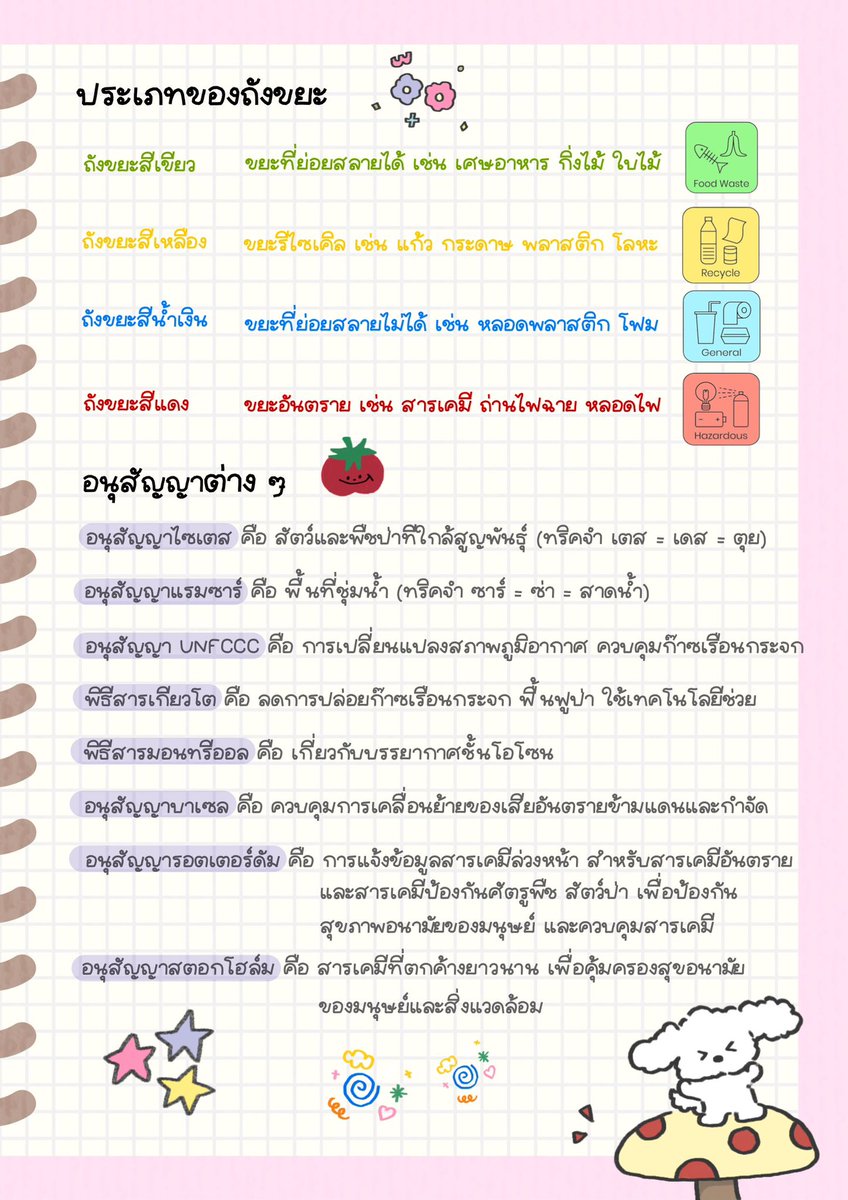 ประเภทของถังขยะ
ถังขยะสีเขียว ขยะที่ย่อยสลายได้ เช่น เศษอาหาร กิ่งไม้ ใบไม้
Food Waste
ถังขยะสีเหลือง ขยะรีไซเคิล เช่น แก้ว กระดาษ พลาสติก โลหะ
Recycle
ถังขยะสีน้ำเงิน ขยะที่ย่อยสลายไม่ได้ เช่น หลอดพลาสติก โฟม
General
ถังขยะสีแดง ขยะอันตราย เช่น สารเคมี ถ่านไฟฉาย หลอดไฟ
Hazardous
อนุสัญญาต่าง ๆ
อนุสัญญาไซเตส คือ สัตว์และพืชป่าที่ใกล้สูญพันธุ์ (ทริคจำ เตส = เดส = ตุย)
อนุสัญญาแรมซาร์ คือ พื้นที่ชุ่มน้ำ (ทริคจำ ซาร์ = ซ่า = สาดน้ำ)
อนุสัญญา UNFCCC คือ การเปลี่ยนแปลงสภาพภูมิอากาศ ควบคุมก๊าซเรือนกระจก
พิธีสารเกียวโต คือ ลดการปล่อยก๊าซเรือนกระจก ฟื้นฟูป่า ใช้เทคโนโลยีช่วย
พิธีสารมอนทรีออล คือ เกี่ยวกับบรรยากาศชั้นโอโซน
อนุสัญญาบาเซล คือ ควบคุมการเคลื่อนย้ายของเสียอันตรายข้ามแดนและกำจัด
อนุสัญญารอตเตอร์ดัม คือ การแจ้งข้อมูลสารเคมีล่วงหน้า สำหรับสารเคมีอันตราย
และสารเคมีป้องกันศัตรูพืช สัตว์ป่า เพื่อป้องกัน
สุขภาพอนามัยของมนุษย์ และควบคุมสารเคมี
อนุสัญญาสตอกโฮล์ม คือ สารเคมีที่ตกค้างยาวนาน เพื่อคุ้มครองสุขอนามัย
ของมนุษย์และสิ่งแวดล้อม